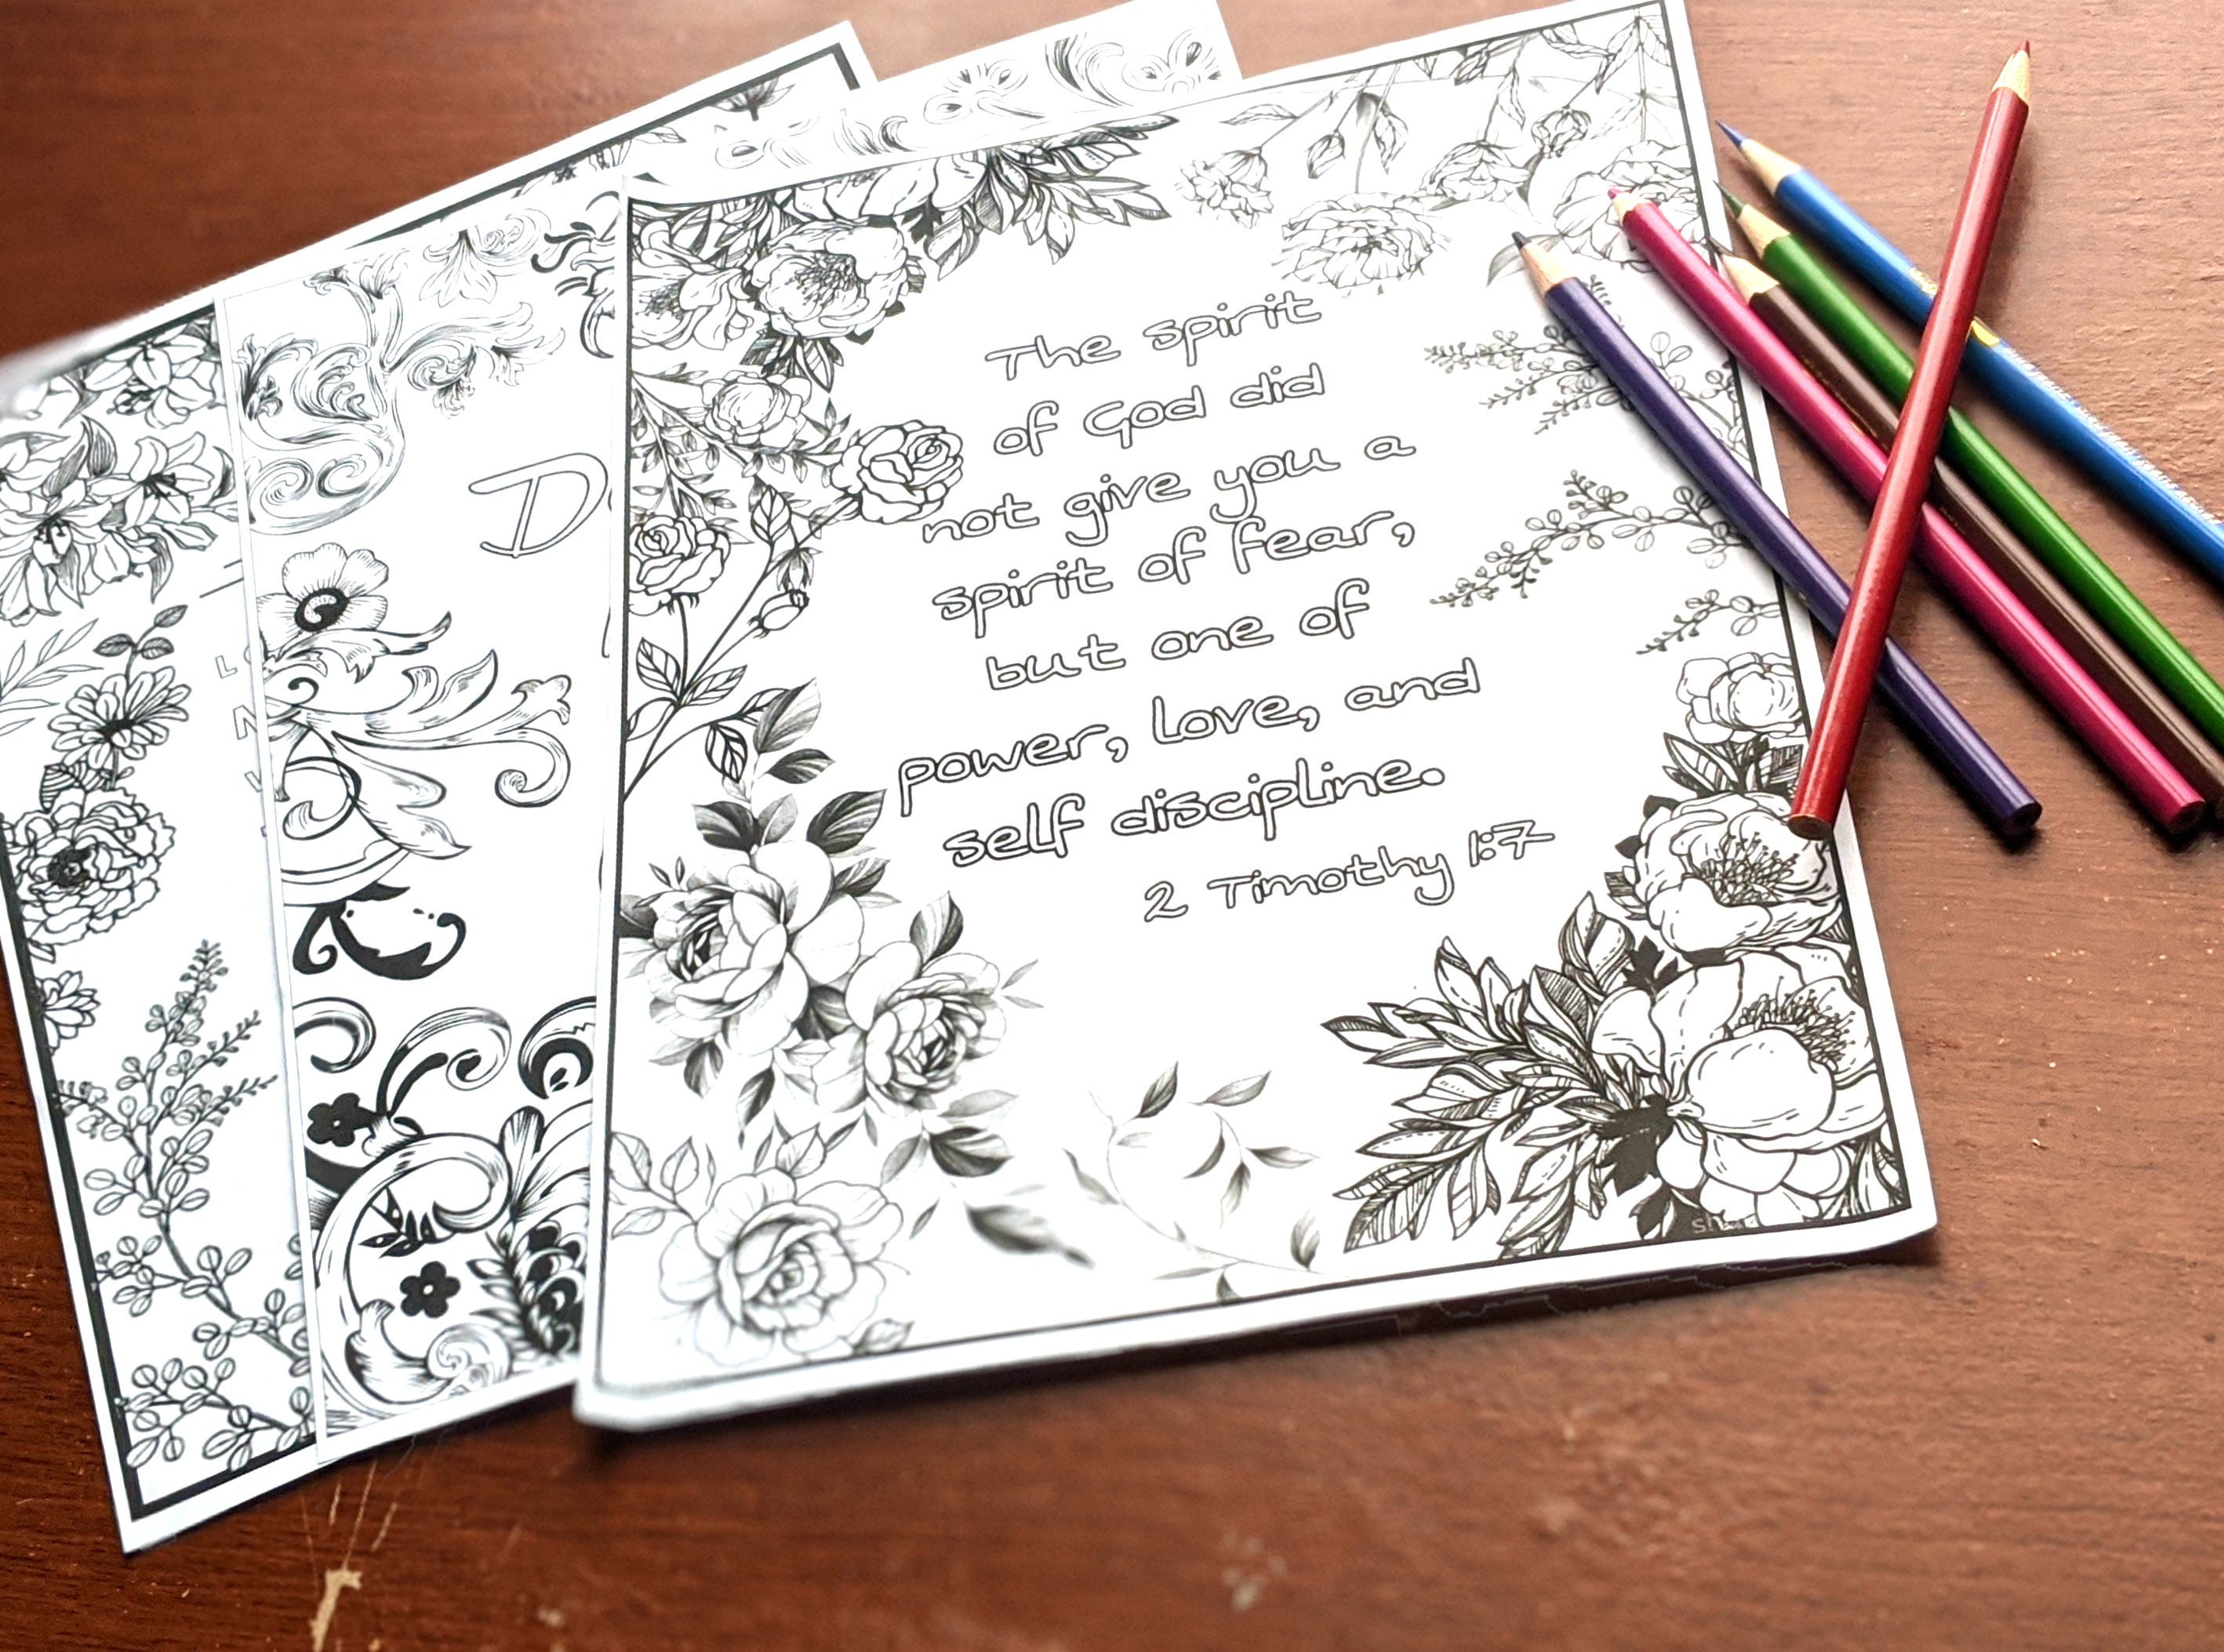 The spirit
of God did
not give you a
spirit of fear,
but one of
power, love, and
self discipline.
2 Timothy 1:7
D
L